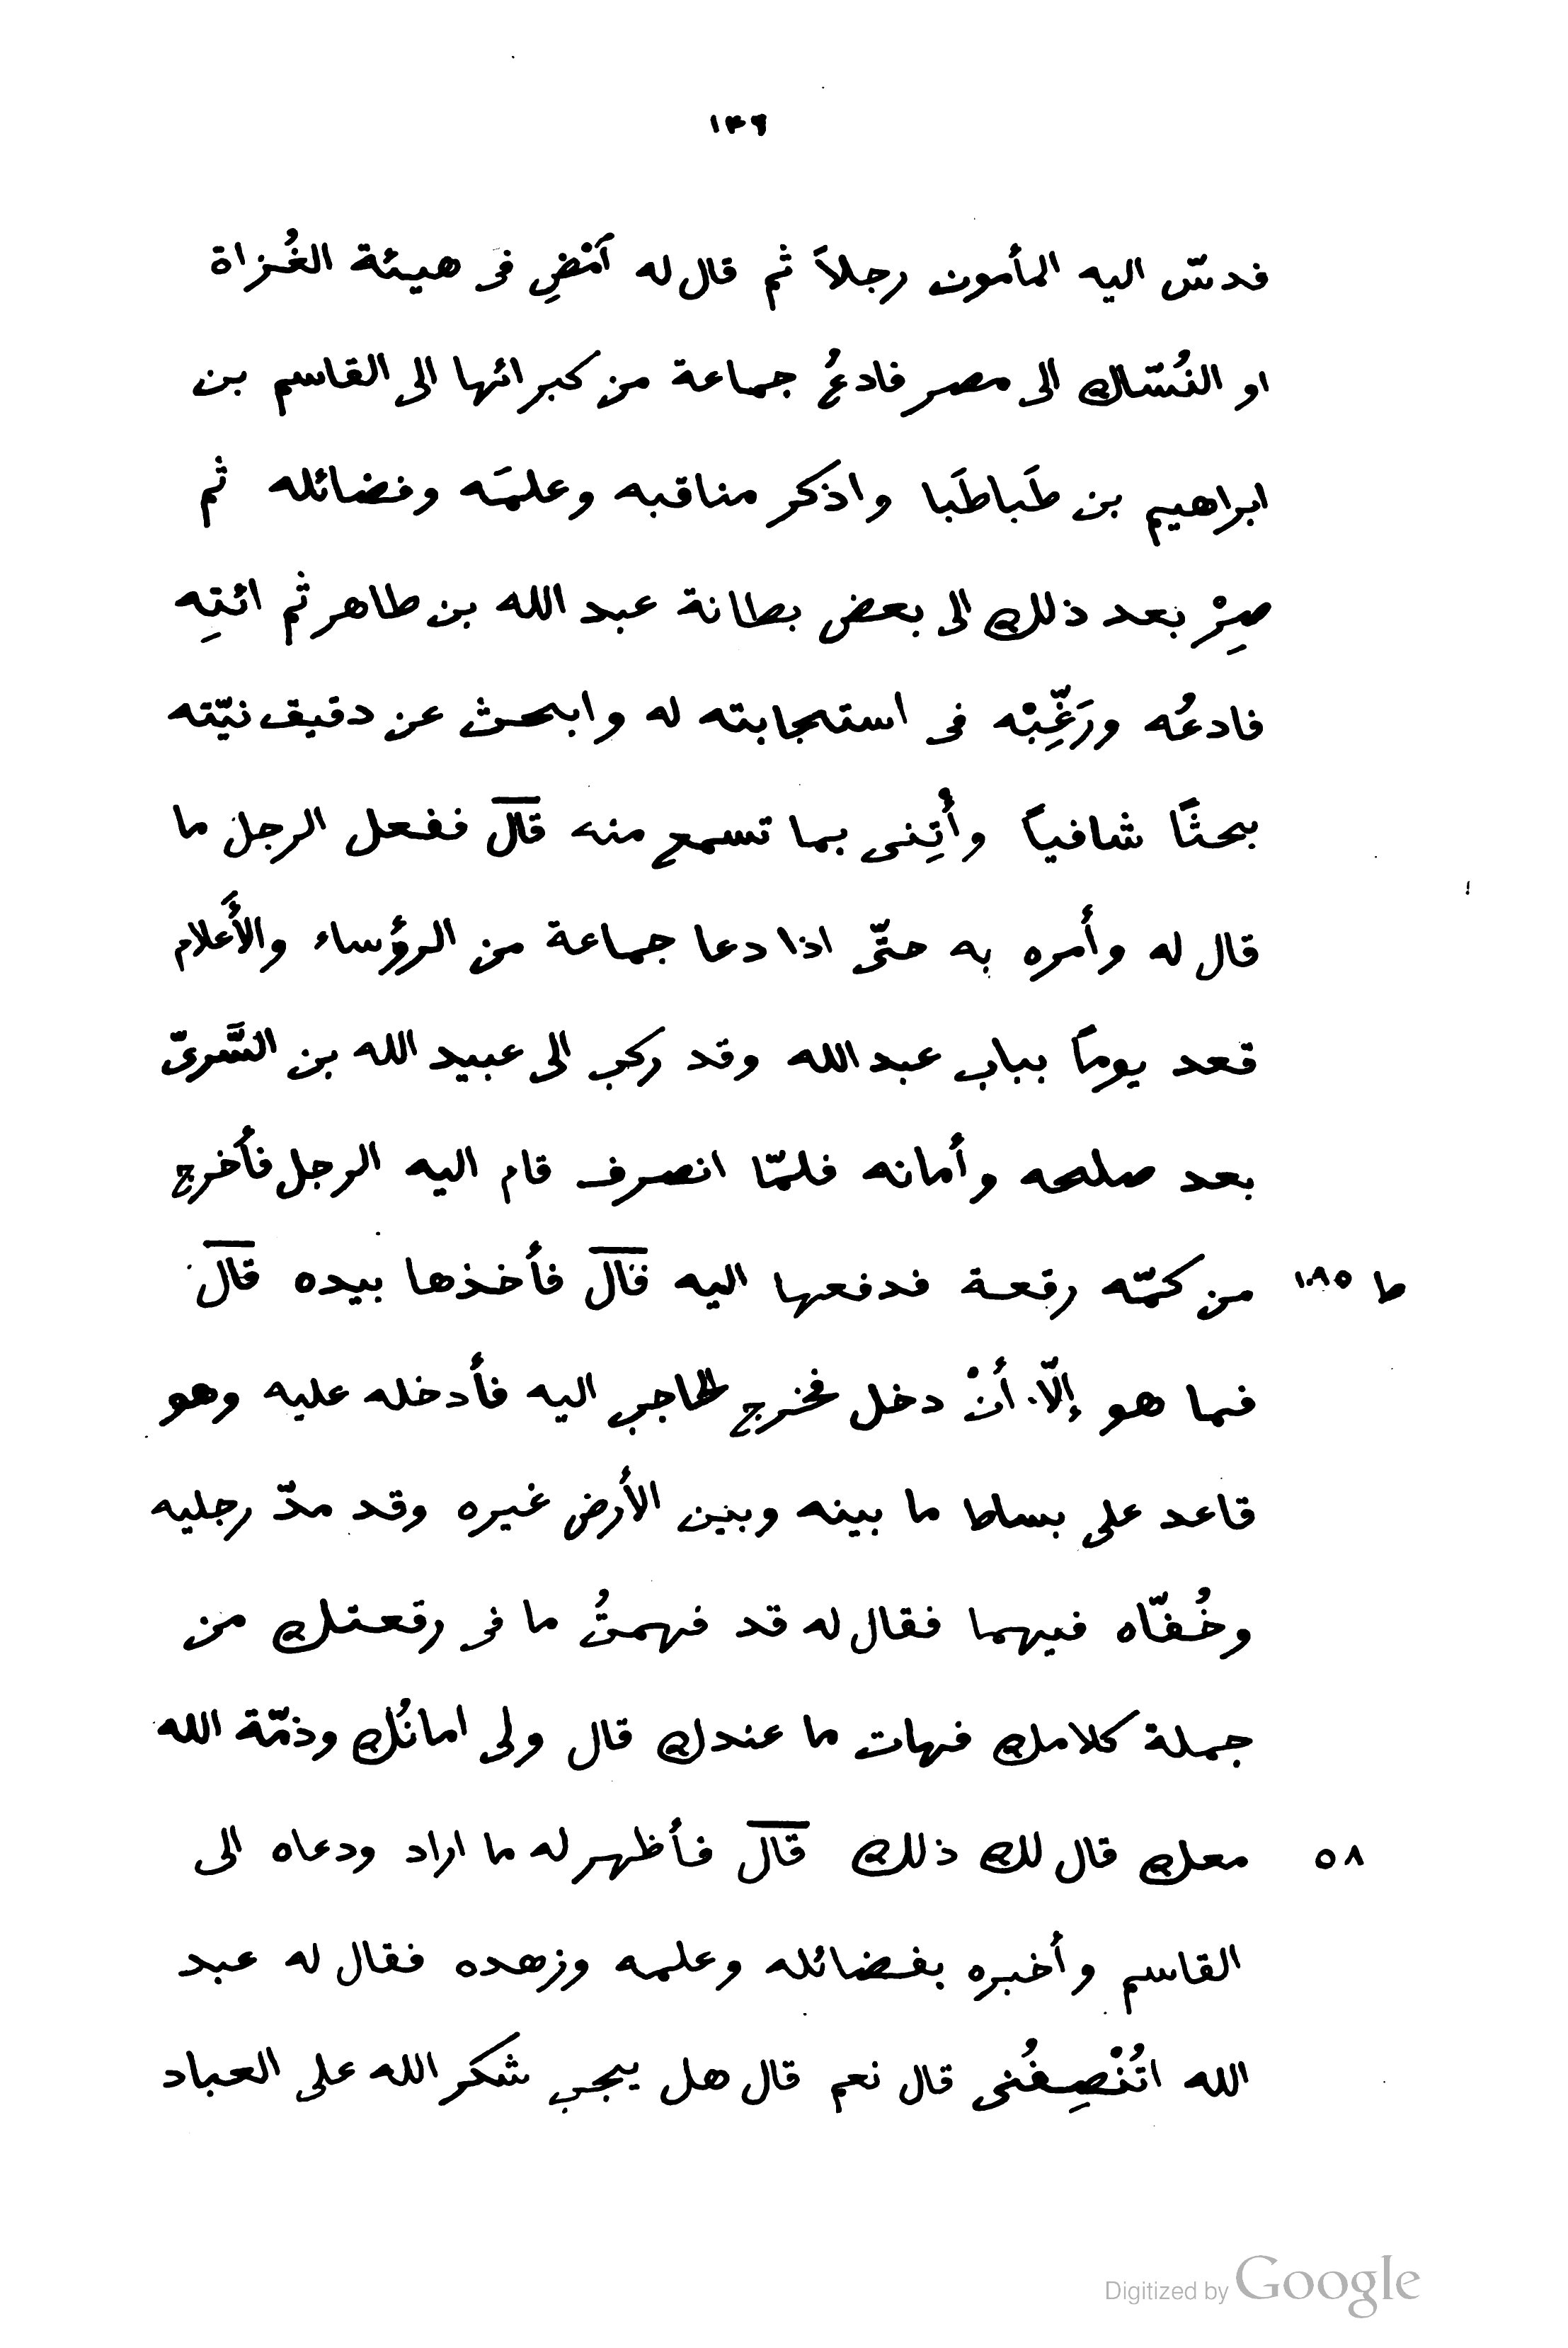 ١٤٦
فدسّ اليه المأمون رجلاً ثم قال له آمْضِ فى هيئة الغُزاة
او النُسّاك الى مصر فادعُ جماعة من كبرائها الى القاسم بن
ابراهيم بن طَباطَبا واذكر مناقبه وعلمَه وفضائله ثم
صِرْ بعد ذلك الى بعض بطانة عبد الله بن طاهر ثم ائتِه
فادعُه ورَغِّبْه فى استجابته له وابحث عن دقيق نيّته
بحثًا شافياً وأْتِنى بما تسمع منه قال ففعل الرجل ما
قال له وأمره به حتّى اذا دعا جماعة من الرؤساء والأَعلام
قعد يوماً بباب عبد الله وقد ركب الى عبيد الله بن السَّرىّ
بعد صلحه وأمانه فلمّا انصرف قام اليه الرجل فأخرج
ط ١٠٩٥ من كمّه رقعة فدفعها اليه قال فأخذها بيده قال
فما هو إلّا أنْ دخل فخرج الحاجب اليه فأدخله عليه وهو
قاعد على بساط ما بينه وبين الأرض غيره وقد مدّ رجليه
وخُفّاه فيهما فقال له قد فهمتُ ما فى رقعتك من
جملة كلامك فهات ما عندك قال ولى امانُك وذمّة الله
٥٨ معك قال لك ذلك قال فأظهر له ما اراد ودعاه الى
القاسم وأخبره بفضائله وعلمه وزهده فقال له عبد
الله اتُنْصِفُنى قال نعم قال هل يجب شكر الله على العباد
Digitized by Google